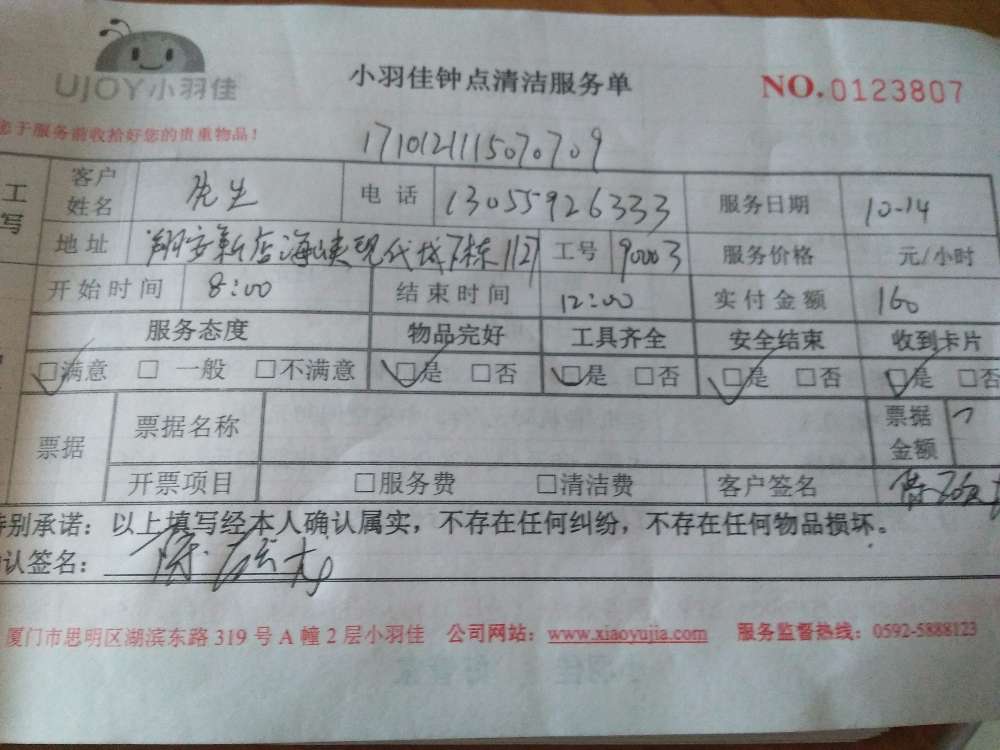 UJOY小羽佳
小羽佳钟点清洁服务单
NO.0123807
于服务前收拾好您的贵重物品！
1710121115070709
工写
客户姓名 先生 电话 13055926333 服务日期 10-14
地址 翔安新店海峡现代城7栋1127 工号 90003 服务价格 元/小时
开始时间 8:00 结束时间 12:00 实付金额 160
服务态度 物品完好 工具齐全 安全结束 收到卡片
□满意 □一般 □不满意 □是 □否 □是 □否 □是 □否 □是 □否
票据 票据名称 票据金额
开票项目 □服务费 □清洁费 客户签名
特别承诺：以上填写经本人确认属实，不存在任何纠纷，不存在任何物品损坏。
确认签名：
厦门市思明区湖滨东路 319 号 A 幢 2 层小羽佳 公司网站：www.xiaoyujia.com 服务监督热线：0592-5888123